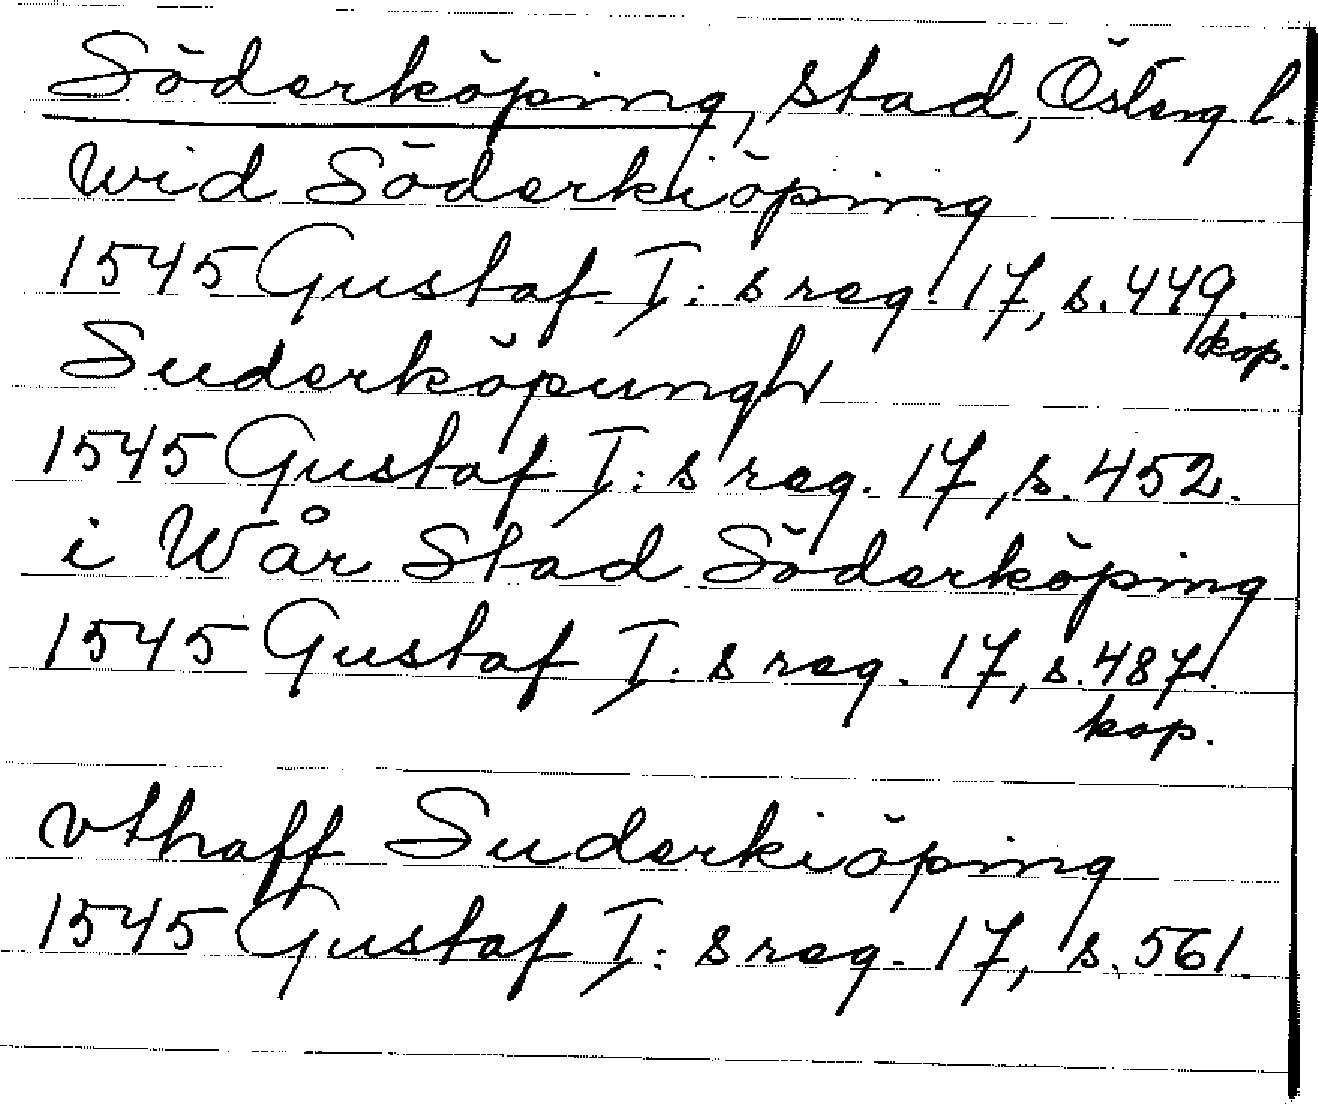 Söderköping, stad, Österg l.
Wid Söderkiöping
1545 Gustaf I: s reg. 17, s. 449.
kop.
Suderköpungh
1545 Gustaf I: s reg. 17, s. 452.
i Wår Stad Söderköping
1545 Gustaf I: s reg. 17, s. 487.
kop.
vthaff Suderkiöping
1545 Gustaf I: s reg. 17, s. 561.